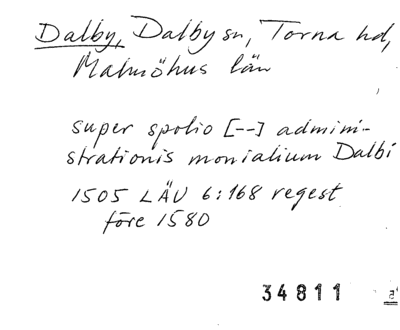 Dalby, Dalby sn, Torna hd,
Malmöhus län
super spolio [--] admini-
strationis monialium Dalbi
1505 LÄU 6:168 regest
före 1580
34811